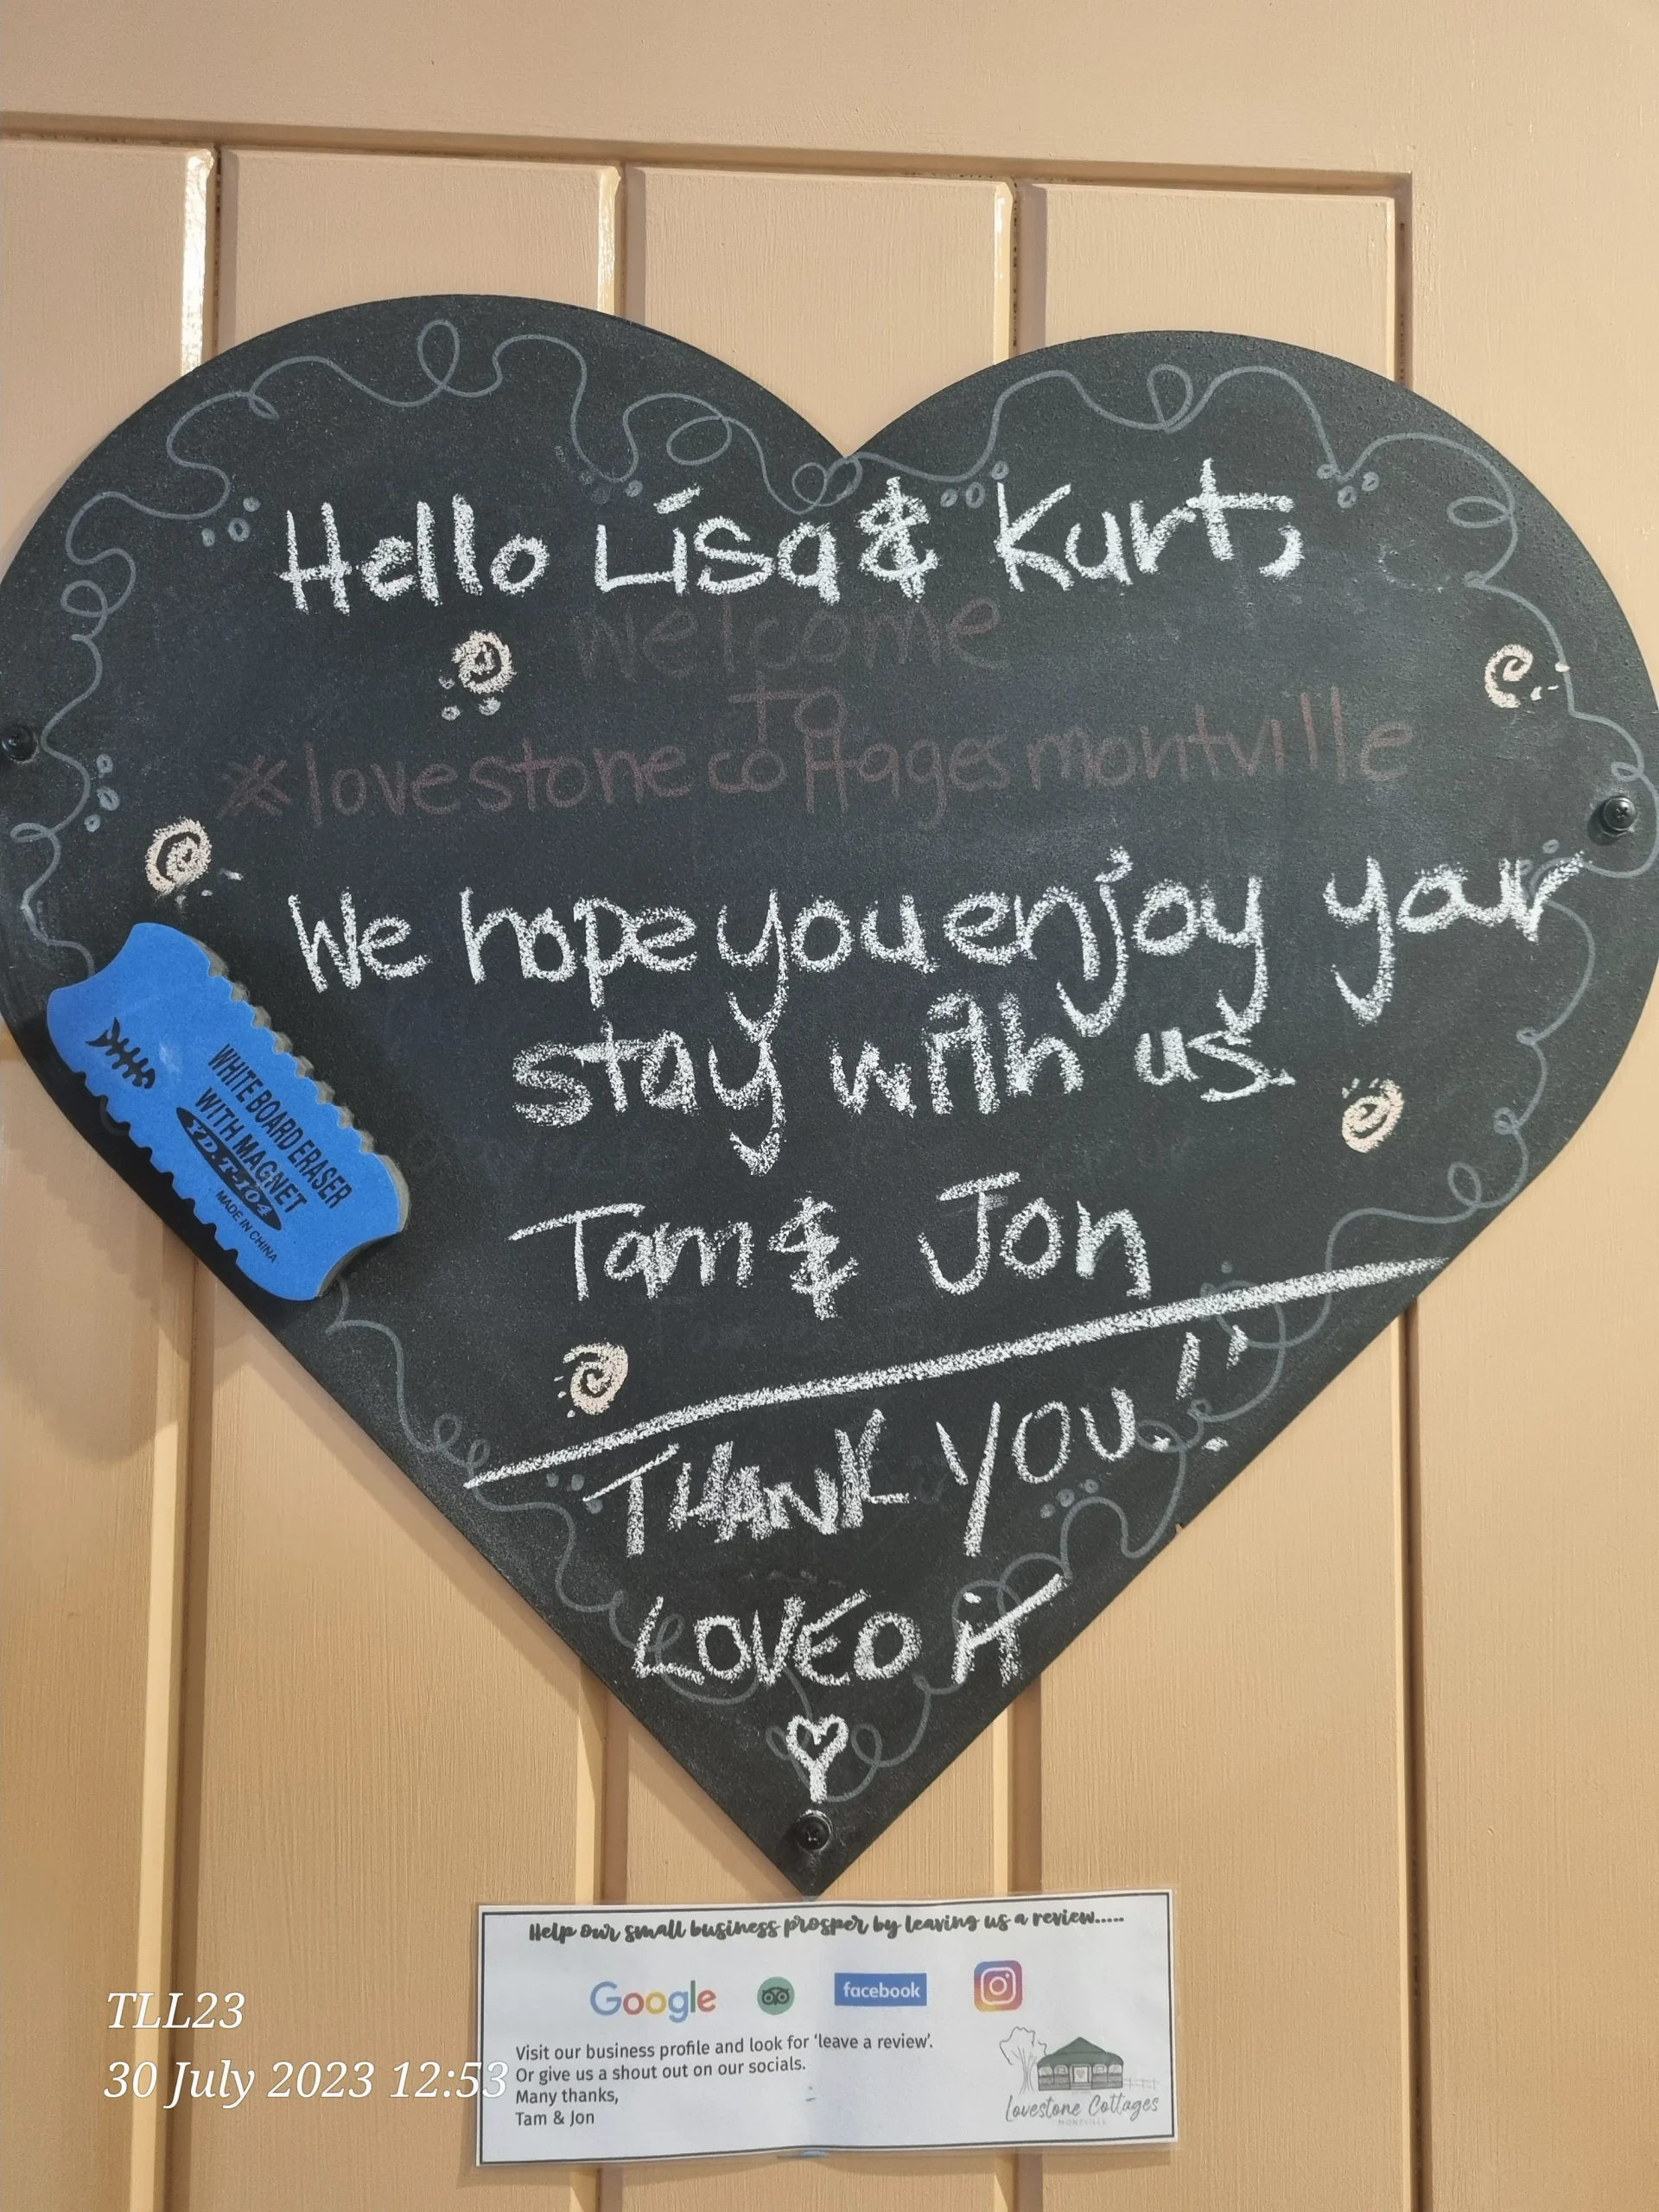 Hello Lisa & Kurt,
Welcome
to
*lovestone cottages montville
We hope you enjoy your
stay with us.
Tam & Jon
THANK YOU!!
LOVED iT
WHITE BOARD ERASER
WITH MAGNET
YD-T-104
MADE IN CHINA
Help our small business prosper by leaving us a review.....
Google facebook
Visit our business profile and look for 'leave a review'.
Or give us a shout out on our socials.
Many thanks,
Tam & Jon
Lovestone Cottages
MONTVILLE
TLL23
30 July 2023 12:53